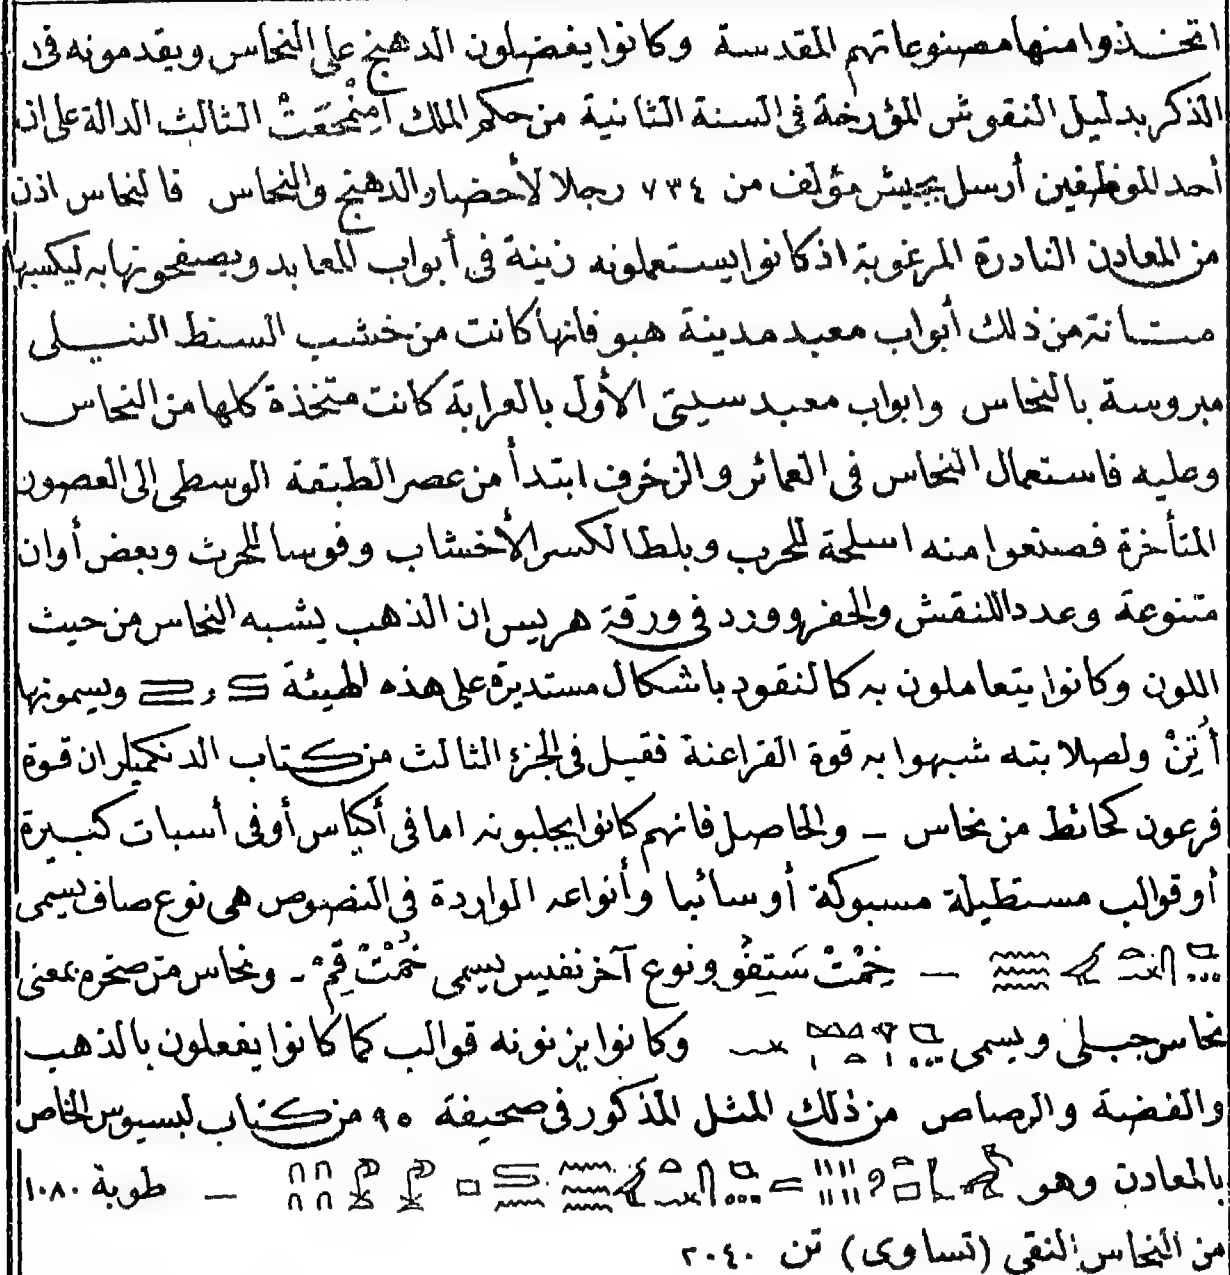 اتخذوا منها مصنوعاتهم المقدسة وكانوا يفضلون الدهنج على النحاس ويقدمونه فى
الذكر بدليل النقوش المؤرخة فى السنة الثانية من حكم الملك أمِنْمْحَعَتْ الثالث الدالة على ان
أحد الموظفين أرسل بجيش مؤلف من ٧٣٤ رجلا لأحضار الدهنج والنحاس فالنحاس اذن
من المعادن النادرة المرغوبة اذ كانوا يستعملونه زينة فى أبواب المعابد ويصفحونها به ليكسبها
متانة من ذلك أبواب معبد مدينة هبو فانها كانت من خشب السنط النيلى
مبروسة بالنحاس وابواب معبد سيتى الأول بالعرابة كانت متخذة كلها من النحاس
وعليه فاستعمال النحاس فى العمائر والزخرف ابتدأ من عصر الطبقة الوسطى الى العصون
المتأخرة فصنعوا منه اسلحة للحرب وبلطا لكسر الأخشاب وفوسا للحرث وبعض أوان
متنوعة وعددا للنقش والحفر وورد فى ورقة هريس ان الذهب يشبه النحاس من حيث
اللون وكانوا يتعاملون به كالنقود باشكال مستديرة على هذه الهيئة و ويسمونها
أُتِنْ ولصلابته شبهوا به قوة الفراعنة فقيل فى الجزء الثالث من كتاب الدنكميلر ان قوة
فرعون كحائط من نحاس ــ والحاصل فانهم كانوا يجلبونه اما فى أكياس أو فى أسبات كبيرة
أو قوالب مستطيلة مسبوكة أو سائبا وأنواعه الواردة فى النصوص هى نوع صاف يسمى
ــ خُمْتْ سَتِفُو ونوع آخر نفيس يسمى خُمْتْ قِمْ ــ ونحاس من صخره بمعنى
نحاس جبلى ويسمى وكانوا يزنونه قوالب كما كانوا يفعلون بالذهب
والفضة والرصاص من ذلك المثل المذكور فى صحيفة ٩٥ من كتاب لبسيوس الخاص
بالمعادن وهو ــ طوبة ١٠٨٠
من النحاس النقى (تساوى) تن ٢٠٤٠